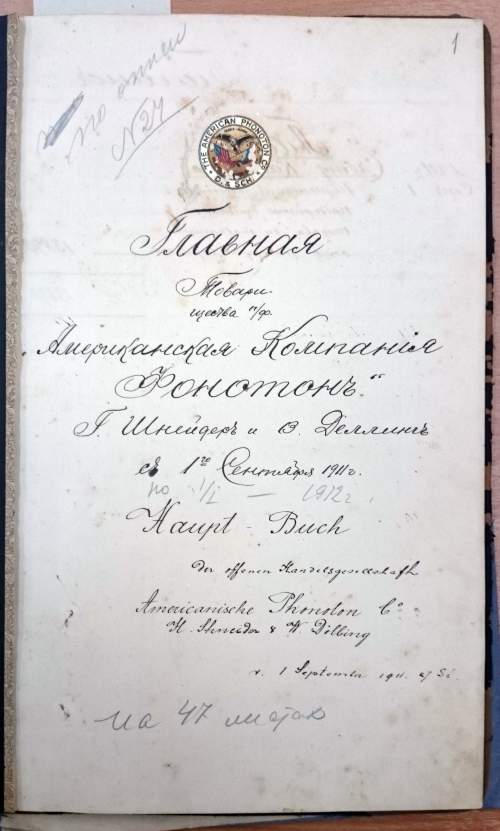 1
по описи
№ 24
THE AMERICAN PHONOTON Co
D. & SCH.
Главная
Товари-
щества п/ф.
„Американская Компанія
Фонотонъ“
Г. Шнейдеръ и В. Деллингъ
съ 1го Сентября 1911 г.
по 1/I — 1912 г
Haupt-Buch
der offenen Handelsgesellschaft
Americanische Phonoton Co
H. Shneider & W. Dölling
v. 1 September 1911
на 47 листах